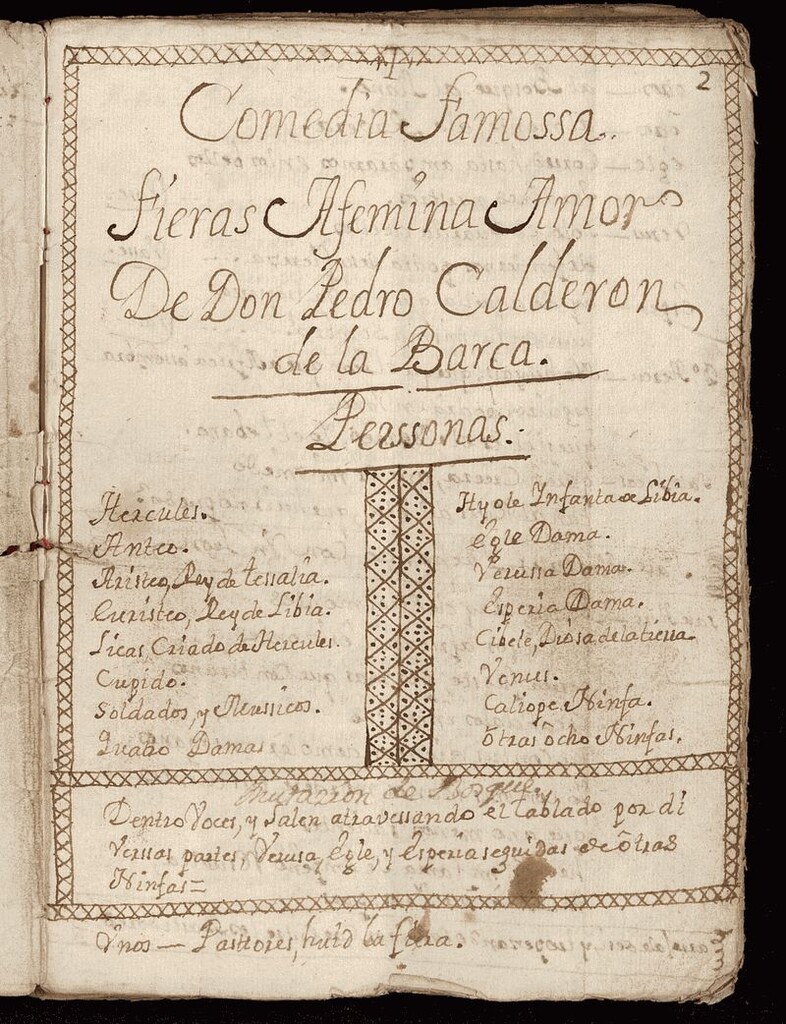 2
Comedia Famossa.
Fieras Afemina Amor
De Don Pedro Calderon
de la Barca.
Perssonas.
Hercules.
Anteo.
Aristeo, Rey de tessalia.
Euristeo, Rey de Libia.
Licas, Criado de Hercules.
Cupido.
Soldados, y Mussicos.
Quatro Damas
Hyole Infanta de Libia.
Egle Dama.
Verussa Dama.
Esperia Dama.
Cibele, Diosa de la tierra
Venus.
Caliope Ninfa.
Otras ôcho Ninfas.
Mutazion de Bosque.
Dentro Voces, y Salen atravessando el tablado por di
Verssas partes, Verusa, Egle, y Esperia seguidas de ôtras
Ninfas=
Vnos — Pastores, huid la fiera.